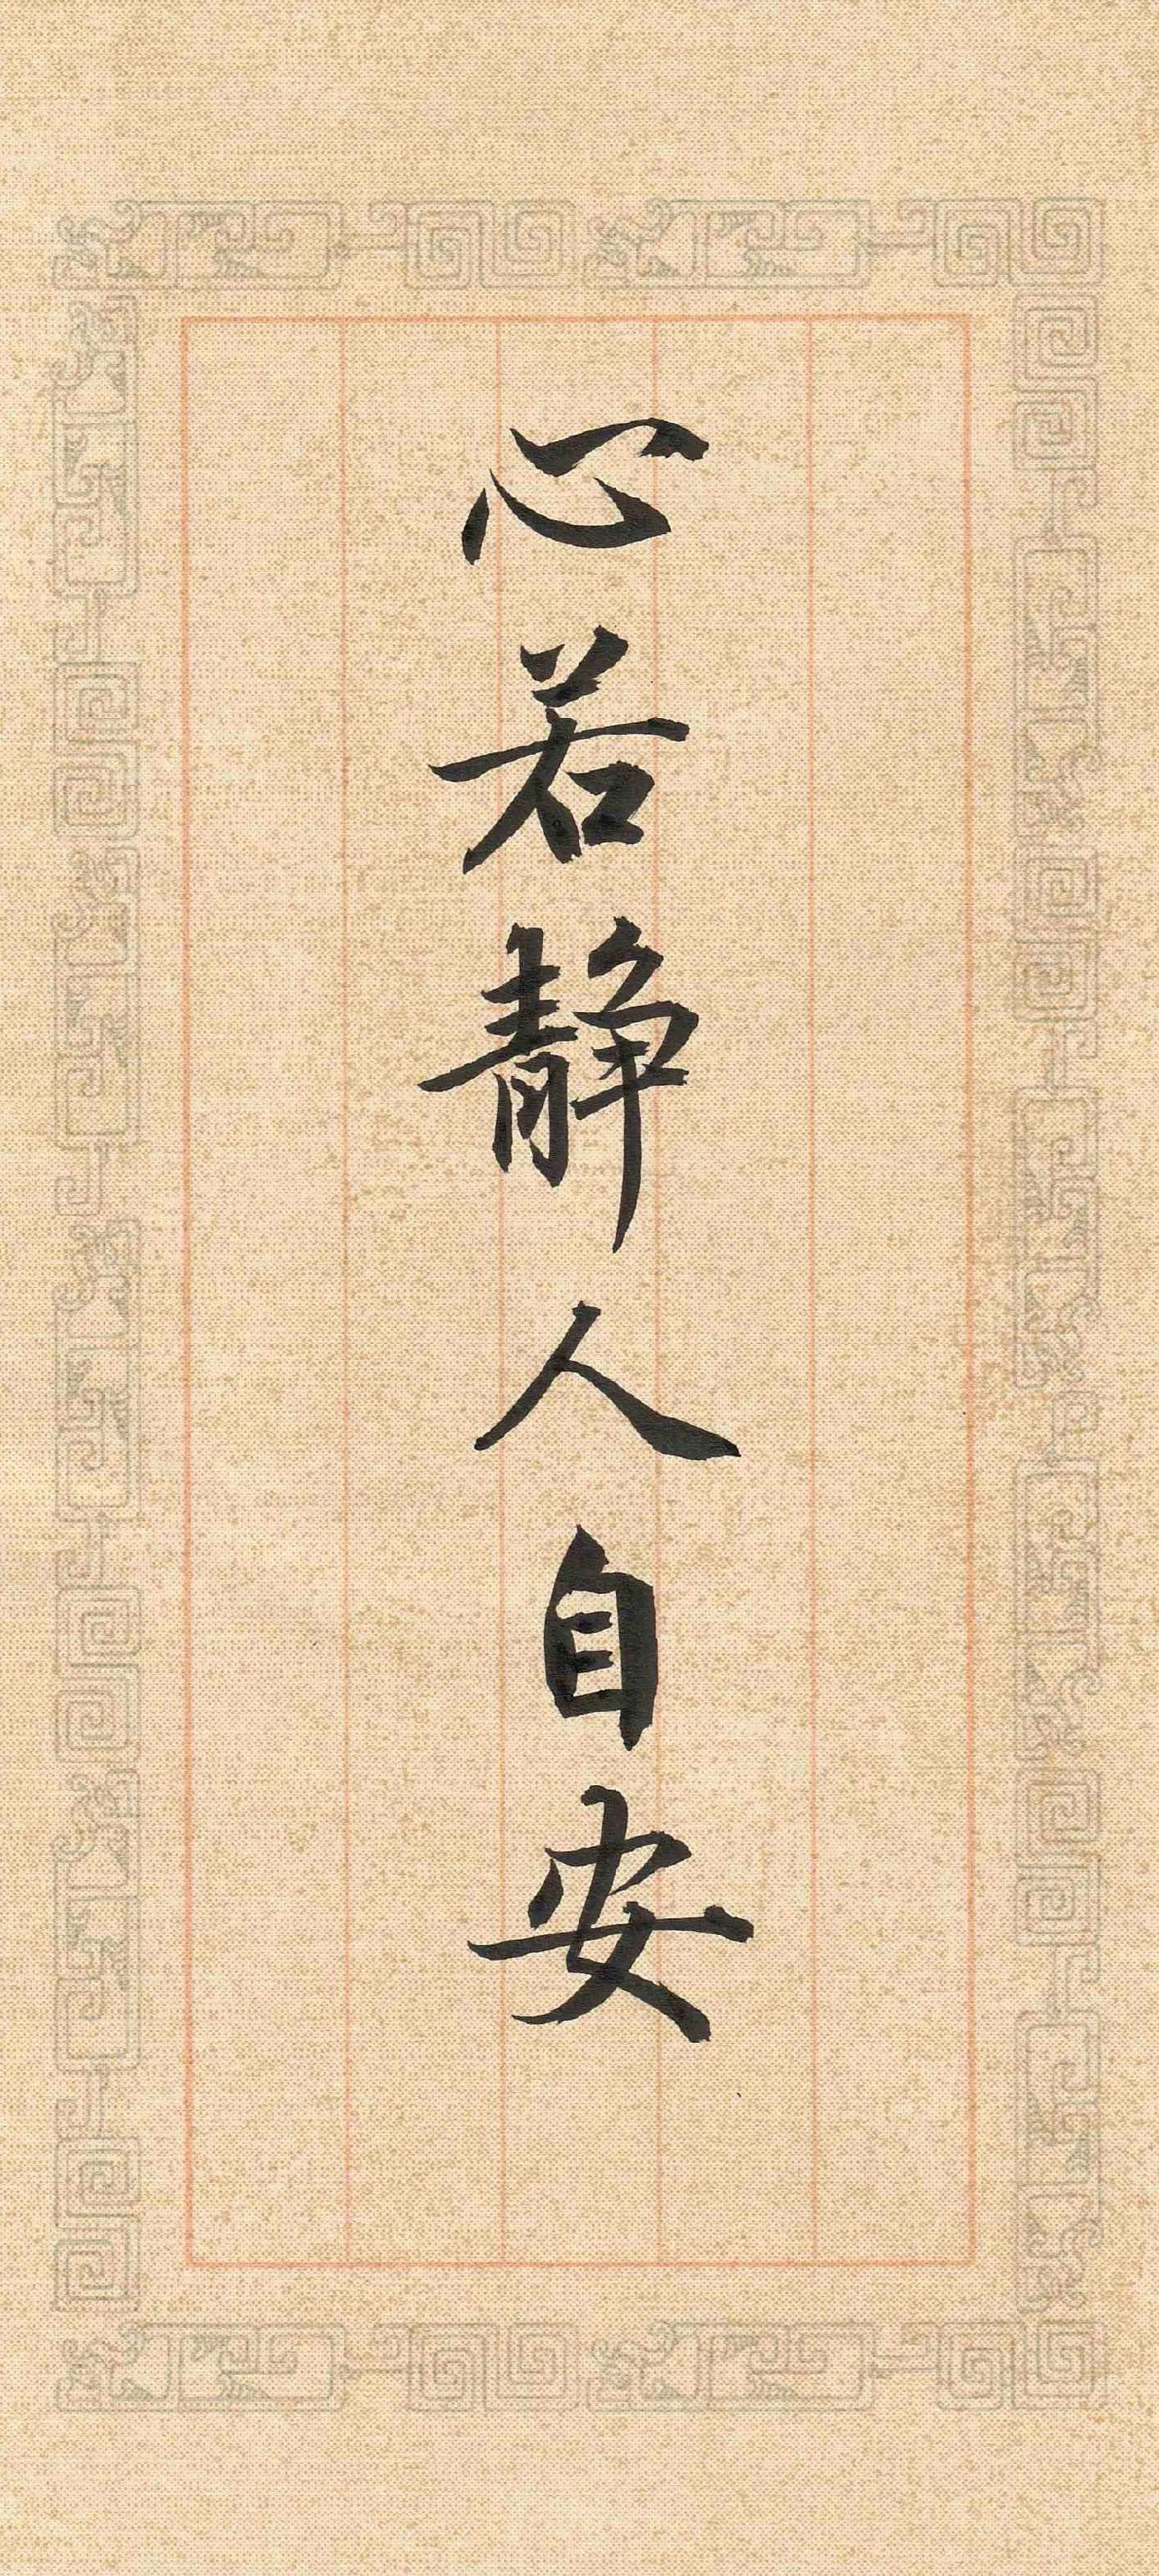 心若静人自安